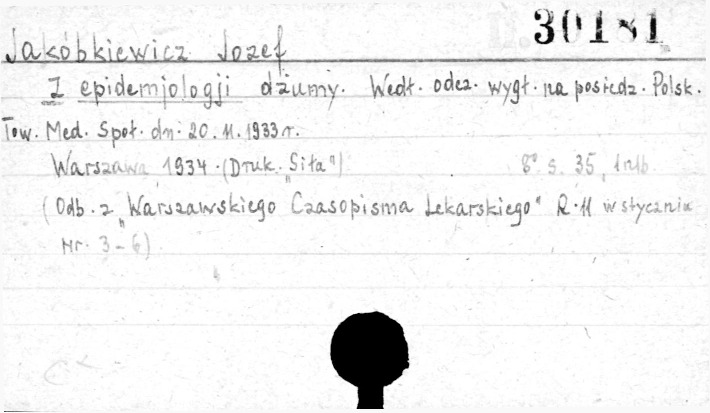 II. 30181
Jakóbkiewicz Józef
Z epidemjologji dżumy. Wedł. odcz. wygł. na posiedz. Polsk.
Tow. Med. Społ. dn. 20. 11. 1933 r.
Warszawa 1934. (Druk. „Siła") 8° s. 35, 1 nlb.
(Odb. z „Warszawskiego Czasopisma Lekarskiego" R. 11 w styczniu
Nr. 3-6)